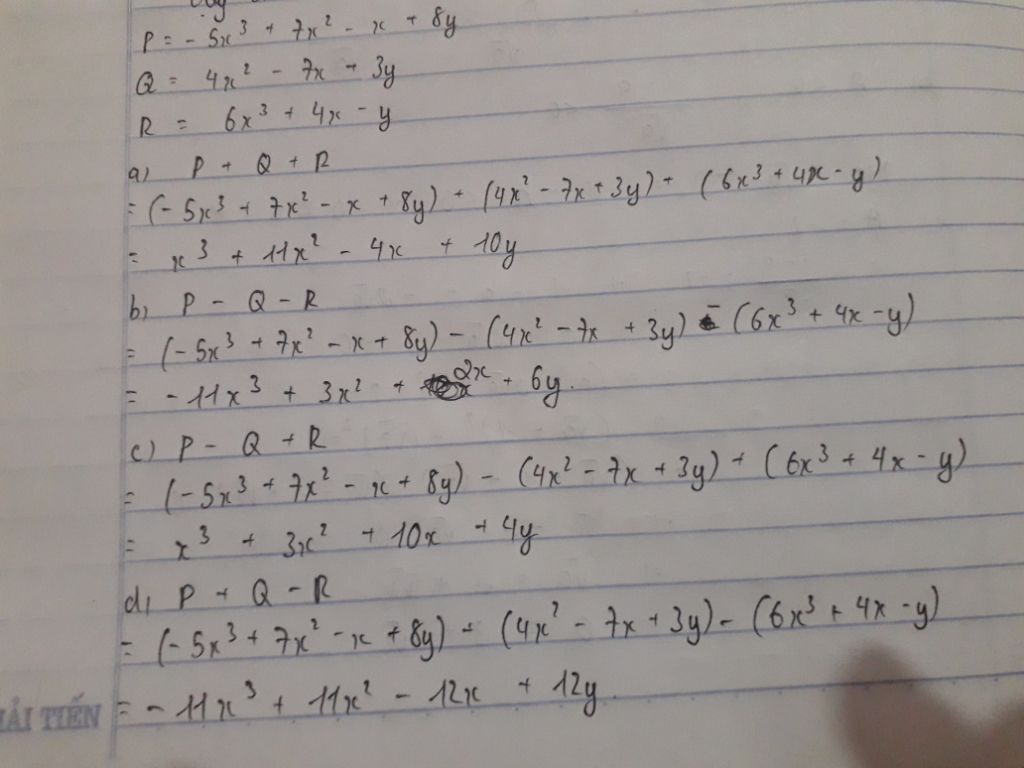 P = - 5x³ + 7x² - x + 8y
Q = 4x² - 7x + 3y
R = 6x³ + 4x - y
a) P + Q + R
= (- 5x³ + 7x² - x + 8y) + (4x² - 7x + 3y) + (6x³ + 4x - y)
= x³ + 11x² - 4x + 10y
b) P - Q - R
= (- 5x³ + 7x² - x + 8y) - (4x² - 7x + 3y) - (6x³ + 4x - y)
= - 11x³ + 3x² + 2x + 6y.
c) P - Q + R
= (- 5x³ + 7x² - x + 8y) - (4x² - 7x + 3y) + (6x³ + 4x - y)
= x³ + 3x² + 10x + 4y
d) P + Q - R
= (- 5x³ + 7x² - x + 8y) + (4x² - 7x + 3y) - (6x³ + 4x - y)
= - 11x³ + 11x² - 12x + 12y.
HẢI TIẾN